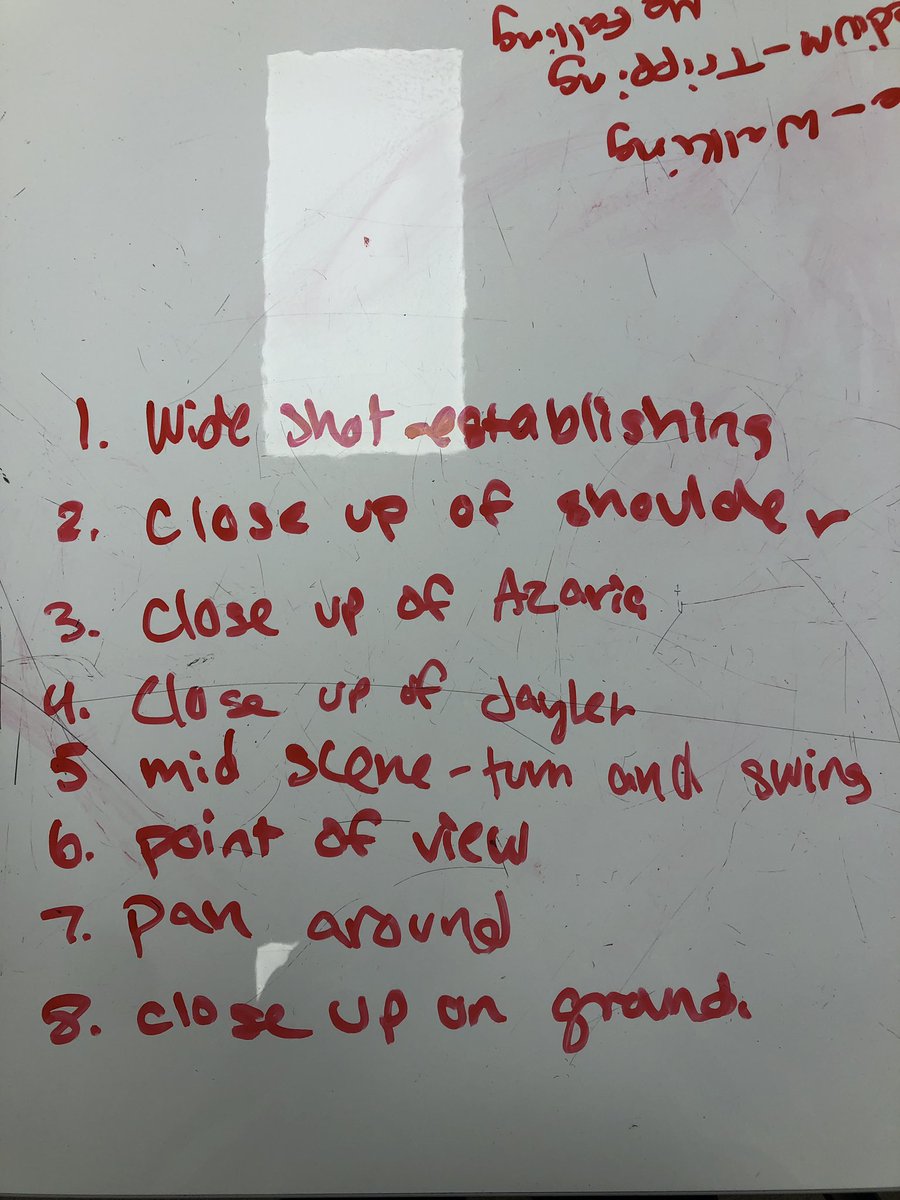 falling
Tripping
Walking
1. Wide shot - establishing
2. Close up of shoulder
3. Close up of Azaria
4. Close up of Jayler
5 mid scene - turn and swing
6. point of view
7. Pan around
8. close up on ground.